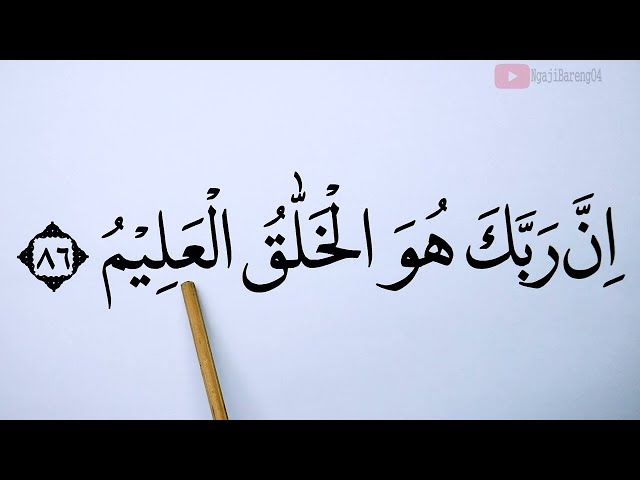 NgajiBareng04
اِنَّ رَبَّكَ هُوَ الْخَلّٰقُ الْعَلِيْمُ ٨٦